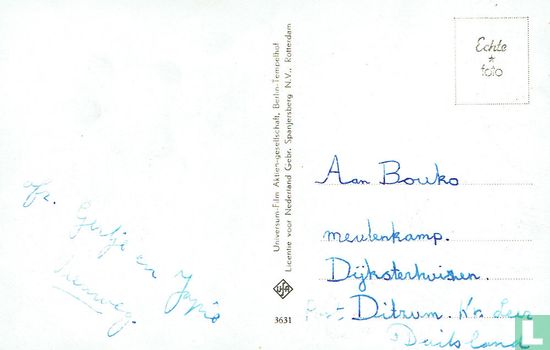 Fr.
Gertje en Jopie
Universum-Film Aktien-gesellschaft, Berlin-Tempelhof
Licentie voor Nederland Gebr. Spanjersberg N.V., Rotterdam
UFA
3631
Echte
*
foto
Aan Bouko
meulenkamp.
Dijksterhuizen.
Post Ditzum. Kr. Leer
Duitsland
catawiki